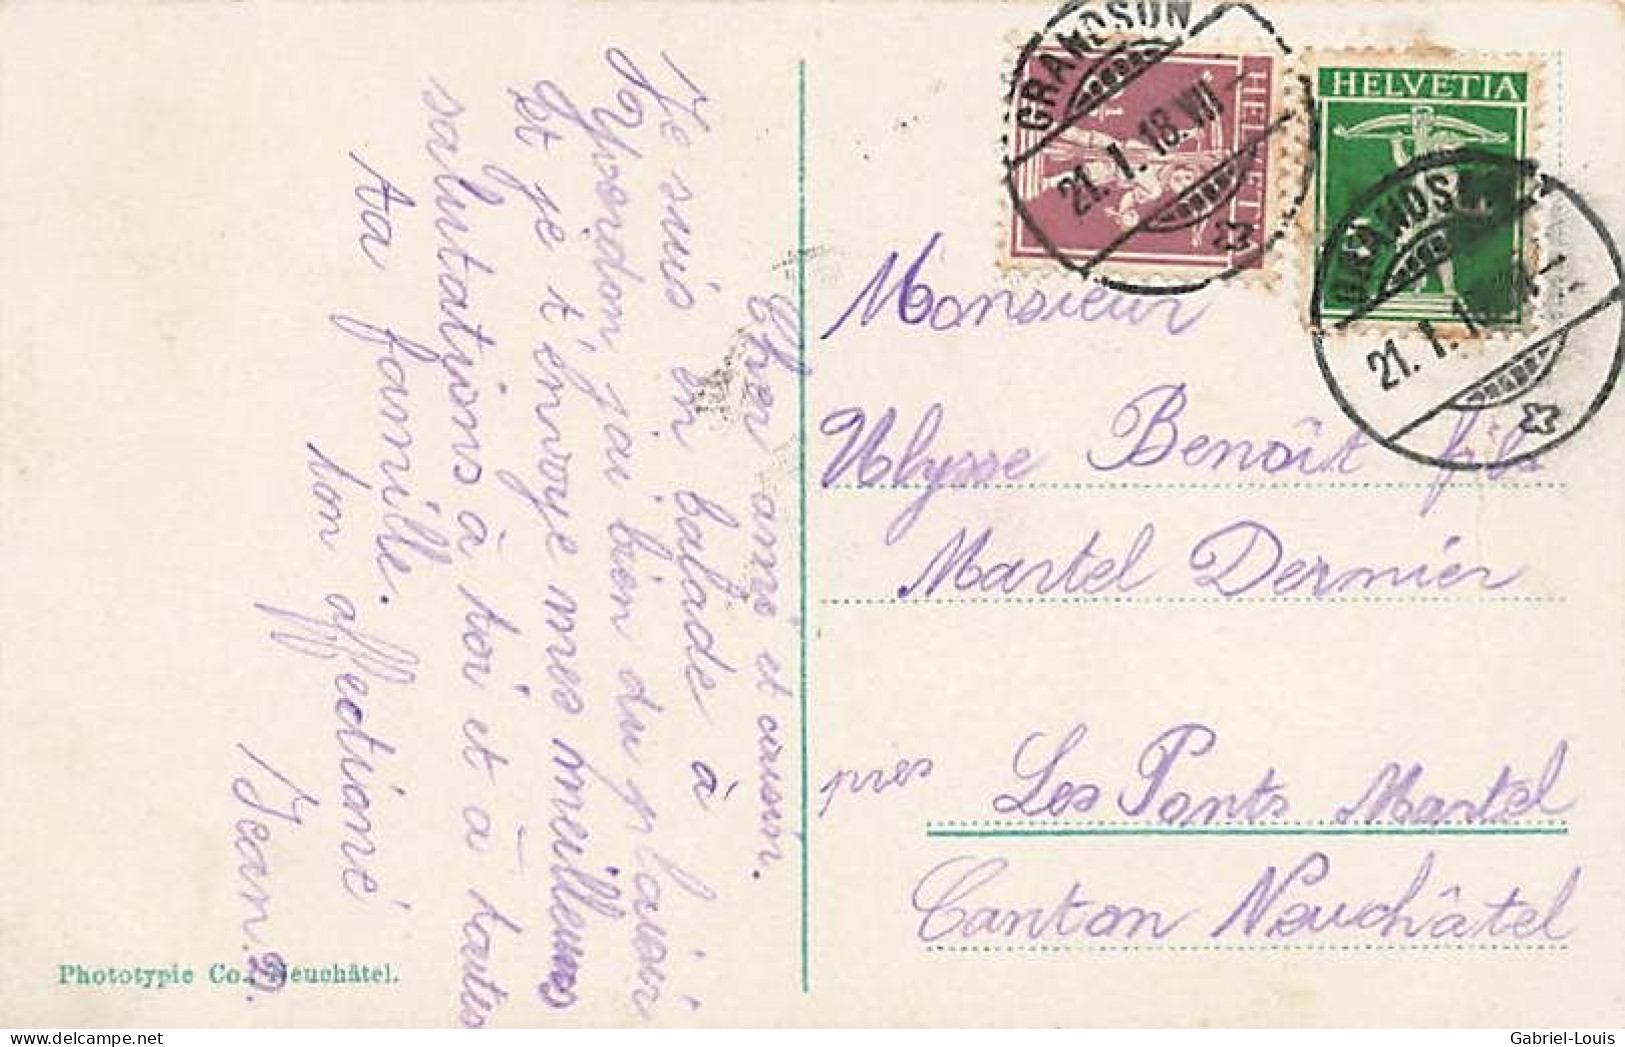 Cher ami et cousin.
Je suis en balade à
Yverdon, j'ai bien du plaisir
et je t'envoye mes meilleures
salutations à toi et à toutes
ta famille.
ton affectioné
Jean B.
Phototypie Co., Neuchâtel.
HELVETIA
HELVETIA
GRANDSON
21. I. 18. VII
GRANDSON
21. I. 18.
Monsieur
Ulysse Benoît fils
Martel Dernier
près Les Ponts Martel
Canton Neuchâtel
Gabriel-Louis